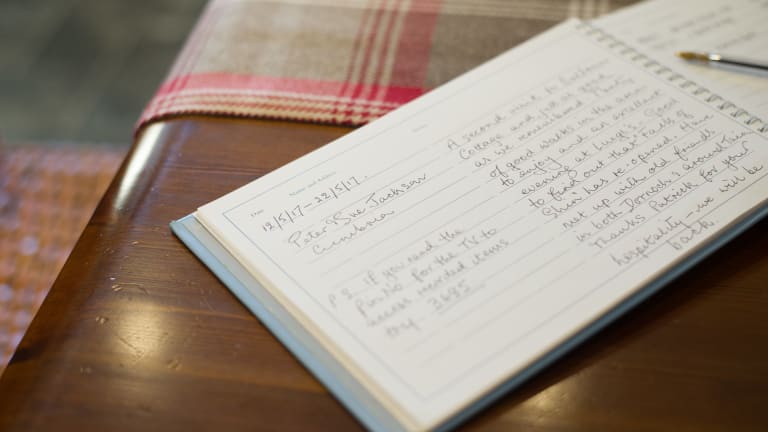 Date
Name and Address
12/5/17 – 22/5/17.
Peter & Sue Jackson
Cumbria
P.S. If you need the
Pin No for the TV to
access recorded items
try 3685
A second visit to
Cottage and just as good
as we remembered. Plenty
of good walks in the area
to enjoy and an excellent
evening at Luigi's. Good
to find out that Falls of
Shin has re-opened. Have
met up with old friends
in both Dornoch & around Tain
Thanks Patrick for your
hospitality – we will be
back.